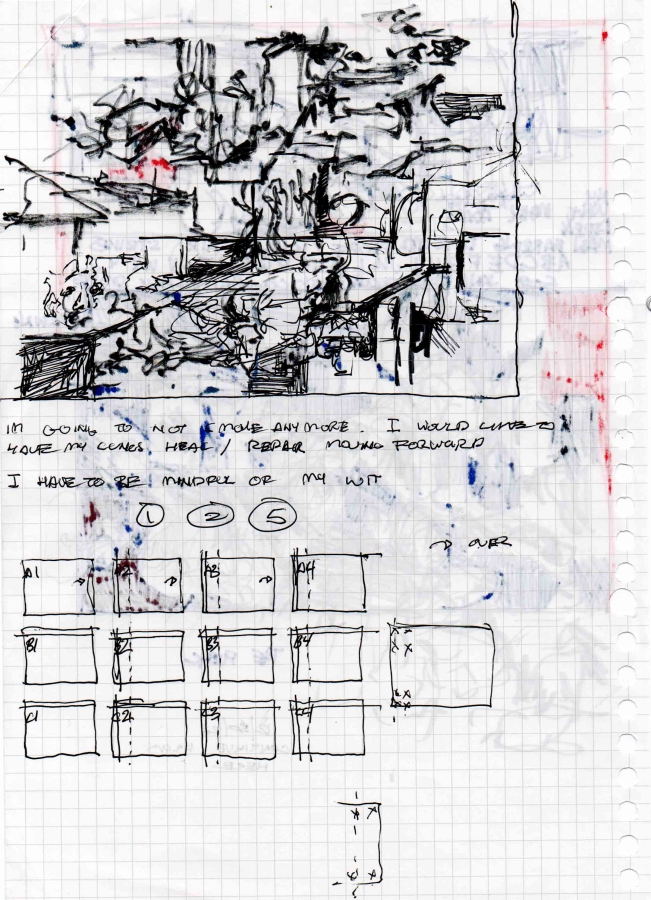 IM GOING TO NOT SMOKE ANYMORE. I WOULD LIKE TO
HAVE MY LUNGS HEAL / REPAIR MOVING FORWARD
I HAVE TO BE MINDFUL OF MY WIT
1 2 5
→ OVER
A1 → → A3 → A4
B1 B2 B3 B4
C1 C2 C3 C4